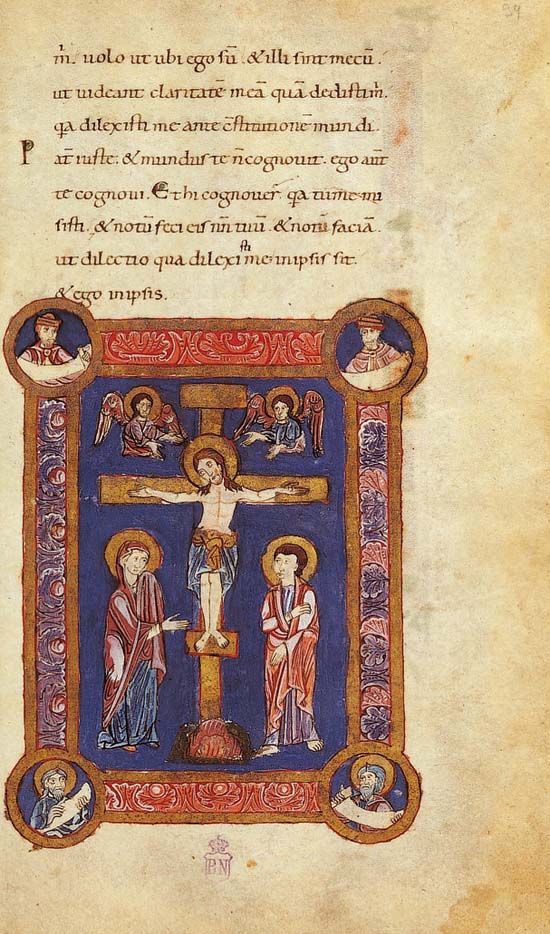 94
m̅. uolo ut ubi ego sū. & illi sint mecū.
ut uideant claritatē meā quā dedistim̅.
qa dilexisti me ante c̅stitutionē mundi.
P at̅ iuste. & mundus te n̅ cognouit. ego aut̅
te cognoui. Et hi cognouer̅. qa tume mi
sisti. & notū feci eis nm̅ tuū. & notū faciā.
ut dilectio qua dilexisti me. in ipsis sit.
& ego in ipsis.
BN